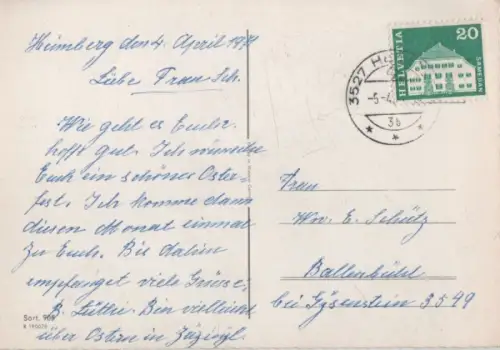 Heimberg den 4. April 1971
Liebe Frau Sch.
Wie geht es Euch
hoffe gut. Ich wünsche
Euch ein schönes Oster-
fest. Ich komme dann
diesen Monat einmal
zu Euch. Bis dahin
empfanget viele Grüsse
B. Lüthi. Bin vielleicht
über Ostern in
Sort. 968
HELVETIA
20
SAMEDAN
3527
-5-4
3b
Frau
Ww. E. Schütz
Ballenbühl
bei Gysenstein 3549